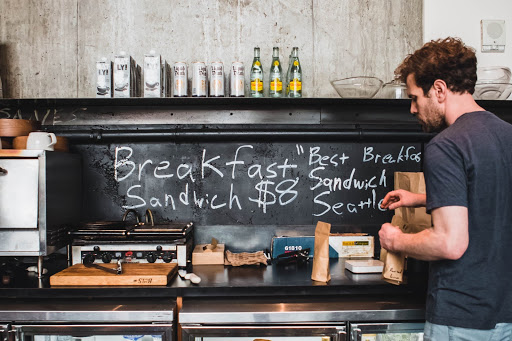 Breakfast
Sandwich $8
"Best Breakfas
Sandwich
Seattle
61810